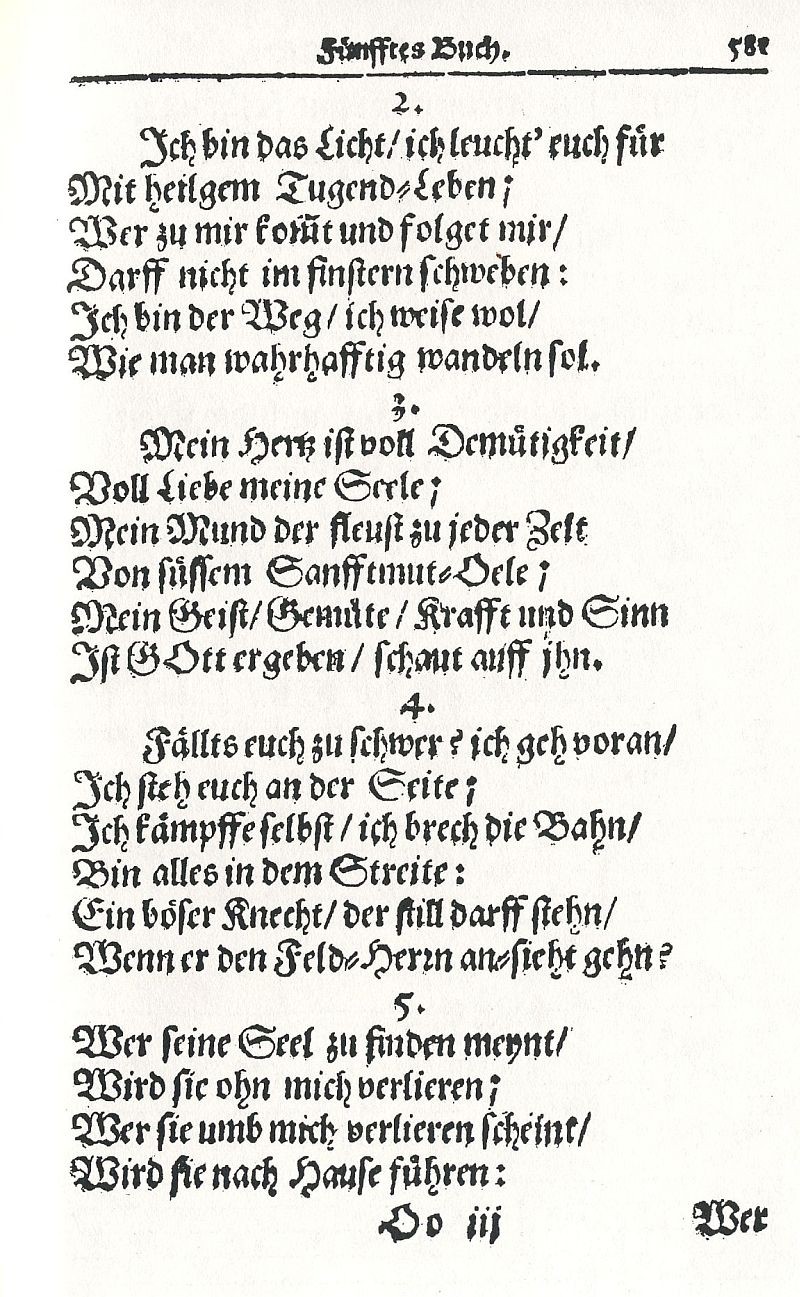 Fünfftes Buch. 581
2.
Ich bin das Licht/ ich leucht’ euch für
Mit heilgem Tugend-Leben;
Wer zu mir kom̃t und folget mir/
Darff nicht im finstern schweben:
Ich bin der Weg/ ich weise wol/
Wie man wahrhafftig wandeln sol.
3.
Mein Hertz ist voll Demütigkeit/
Voll Liebe meine Seele;
Mein Mund der fleust zu jeder Zeit
Von süssem Sanfftmut-Oele;
Mein Geist/ Gemüte/ Krafft und Sinn
Ist GOtt ergeben/ schaut auff jhn.
4.
Fällts euch zu schwer? ich geh voran/
Ich steh euch an der Seite;
Ich kämpffe selbst/ ich brech die Bahn/
Bin alles in dem Streite:
Ein böser Knecht/ der still darff stehn/
Wenn er den Feld-Herrn an-sieht gehn?
5.
Wer seine Seel zu finden meynt/
Wird sie ohn mich verlieren;
Wer sie umb mich verlieren scheint/
Wird sie nach Hause führen:
Oo iij Wer